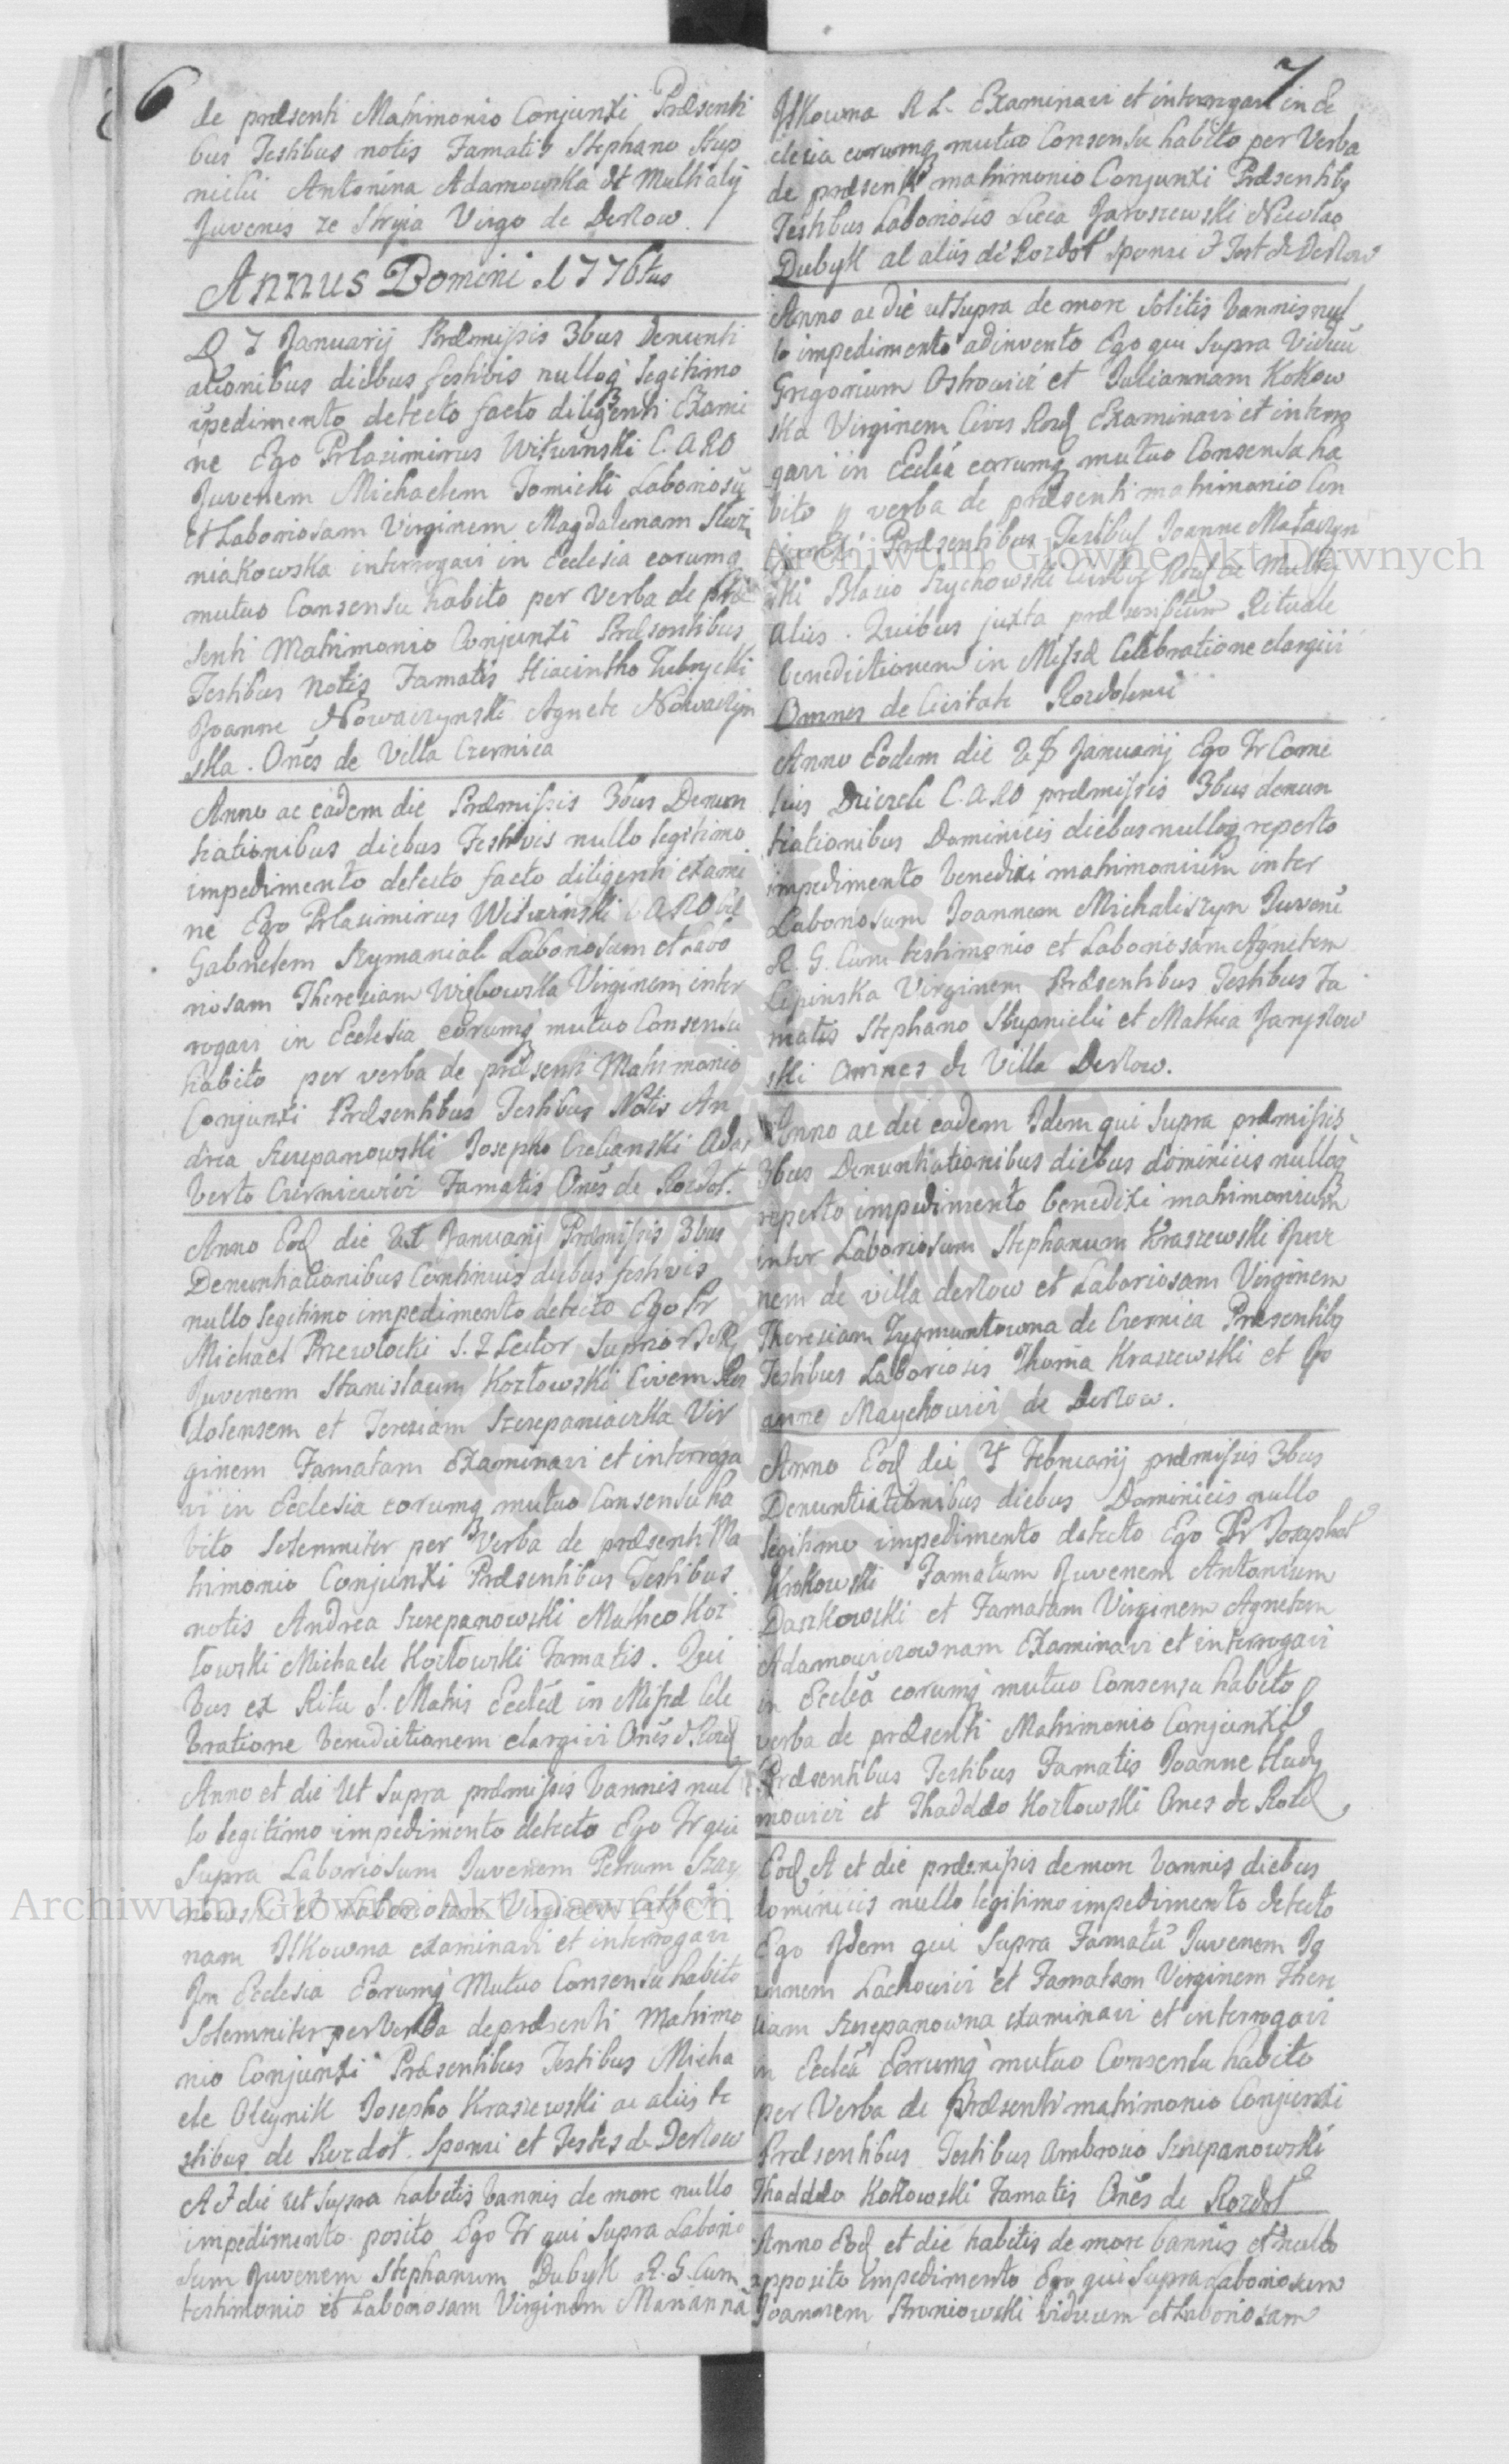 6
de præsenti Matrimonio Conjunxi Præsenti
bus Testibus notis Famatis Stephano Stup
nicki Antonina Adamowska et Multi alij
Juvenis ze Stryia Virgo de Derżow.
Annus Domini 1776tus
D 7 Januarij Præmissis 3bus Denunti
ationibus diebus festivis nulloq legitimo
ĩpedimento detecto facto diligenti Exami
ne Ego Pr Casimirus Witwinski C. A R O
Juvenem Michaelem Tomicki Laboriosũ
et Laboriosam Virginem Magdalenam
niakowska interrogavi in Ecclesia eorumq
mutuo Consensu habito per Verba de præ
senti Matrimonio Conjunxi Præsentibus
Testibus Notis Famatis Hiacintho Tubrycki
Joanne Nowaczynski Agnete Nowaczyn
ska. Onẽs de Villa Czernica
Anno ac eadem die Præmissis 3bus Denun
tiationibus diebus Festivis nullo legitimo
impedimento detecto facto diligenti exami
ne Ego Pr Casimirus Witwinski C A R O
Gabrielem Szymaniak Laboriosum et Labo
riosam Theresiam Virginem inter
rogavi in Ecclesia eorumq mutuo Consensu
habito per verba de præsenti Matrimonio
Conjunxi Præsentibus Testibus Notis An
drea Szczepanowski Josepho Adal
berto Czerniewicz Famatis Onẽs de Rozdoł.
Anno Eod die 21 Januarij Præmissis 3bus
Denuntiationibus Continuis diebus festivis
nullo legitimo impedimento detecto Ego Fr
Michael Przewłocki S. T. Lector Suprior
Juvenem Stanislaum Kozłowski Civem Roz
dolensem et Teresiam Szczepaniaczka Vir
ginem Famatam Examinavi et interroga
vi in Ecclesia eorumq mutuo Consensu ha
bito Solemniter per Verba de præsenti Ma
trimonio Conjunxi Præsentibus Testibus
notis Andrea Szczepanowski Matheo Koz
łowski Michaele Kozłowski Famatis. Qui
bus ex Ritu S. Matris Eccleæ in Missæ Cele
bratione benedictionem elargivi Onẽs d. Rozd
Anno et die Ut Supra præmissis bannis nul
lo legitimo impedimento detecto Ego Fr qui
Supra Laboriosum Juvenem Petrum Szay
nowski et Laboriosam Virginem Cathari
nam Jlkowna examinavi et interrogavi
Jn Ecclesia Eorumq Mutuo Consensu habito
Solemniter per Verba de præsenti Matrimo
nio Conjunxi Præsentibus Testibus Micha
ele Oleynik Josepho Kraszewski ac aliis te
stibus de Rozdoł. Sponsi et Testes de Derżow
A et die ut supra habitis bannis de more nullo
impedimento posito Ego Fr qui Supra Laborio
sum Juvenem Stephanum Dubyk R. G. Cum
testimonio et Laboriosam Virginem Mariannã
7
Jlkowna R L. Examinavi et interrogavi in Ec
clesia eorumq mutuo Consensu habito per Verba
de præsenti matrimonio Conjunxi Præsentibq
Testibus Laboriosis Luca Jaroszewski Nicolao
Dubyk al aliis de Rozdoł Sponsi et Test de Derżow
Anno ac die ut Supra de more Solitis bannis nul
lo impedimento adinvento Ego qui Supra Viduũ
Gregorium Ostrowicz et Juliannam Kokow
ska Virginem Cives Rozd Examinavi et interro
gavi in Eccliã eorumq mutuo Consensu ha
bito p verba de præsenti matrimonio Con
junxi Præsentibus Testibus Joanne Mataczyn
ski Blasio Szychowski Civibq Rozd ac Multis
aliis. Quibus juxta præscriptum Rituale
benedictionem in Missæ Celebratione elargivi
Omnes de Civitate Rozdolensi
Anno Eodem die 28 Januarij Ego Fr Corne
lius C. A R O præmissis 3bus denun
tiationibus Dominicis diebus nulloq reperto
impedimento benedixi matrimonium inter
Laboriosum Joannem Michaliszyn Juvenẽ
R. G. Cum testimonio et Laboriosam Agnetem
Lipinska Virginem Præsentibus Testibus Fa
matis Stephano Stupnicki et Mathia Jaryszow
ski Omnes de Villa Derżow.
Anno ac die eadem Jdem qui Supra præmissis
3bus Denuntiationibus diebus dominicis nulloq
reperto impedimento benedixi matrimonium
inter Laboriosum Stephanum Kraszewski Juve
nem de villa derżow et Laboriosam Virginem
Theresiam Zygmuntowna de Czernica Præsentibq
Testibus Laboriosis Thoma Kraszewski et Jo
anne Maychowicz de Derżow.
Anno Eod die 4 Februarij præmissis 3bus
Denuntiationibus diebus Dominicis nullo
legitimo impedimento detecto Ego Pr Josaphat
Krokowski Famatum Juvenem Antonium
Daszkowski et Famatam Virginem Agnetem
Adamowiczownam Examinavi et interrogavi
in Eccleã eorumq mutuo Consensu habito p
verba de præsenti Matrimonio Conjunxi
Præsentibus Testibus Famatis Joanne Hady
mowicz et Thaddæo Kozłowski Ones de Rozd
Eod A et die præmissis de more bannis diebus
dominicis nullo legitimo impedimento detecto
Ego Jdem qui Supra Famatũ Juvenem Jo
annem Lachowicz et Famatam Virginem There
siam Szczepanowna examinavi et interrogavi
in Eccleã Eorumq mutuo Consensu habito
per Verba de Præsenti matrimonio Conjunxi
Præsentibus Testibus Ambrosio Szczepanowski
Thaddæo Kozłowski Famatis Onẽs de Rozdoł
Anno Eod et die habitis de more bannis et nullo
apposito impedimento Ego qui Supra Laboriosum
Joannem Broniowski viduum et Laboriosam
Archiwum Główne Akt Dawnych
Archiwum Główne Akt Dawnych